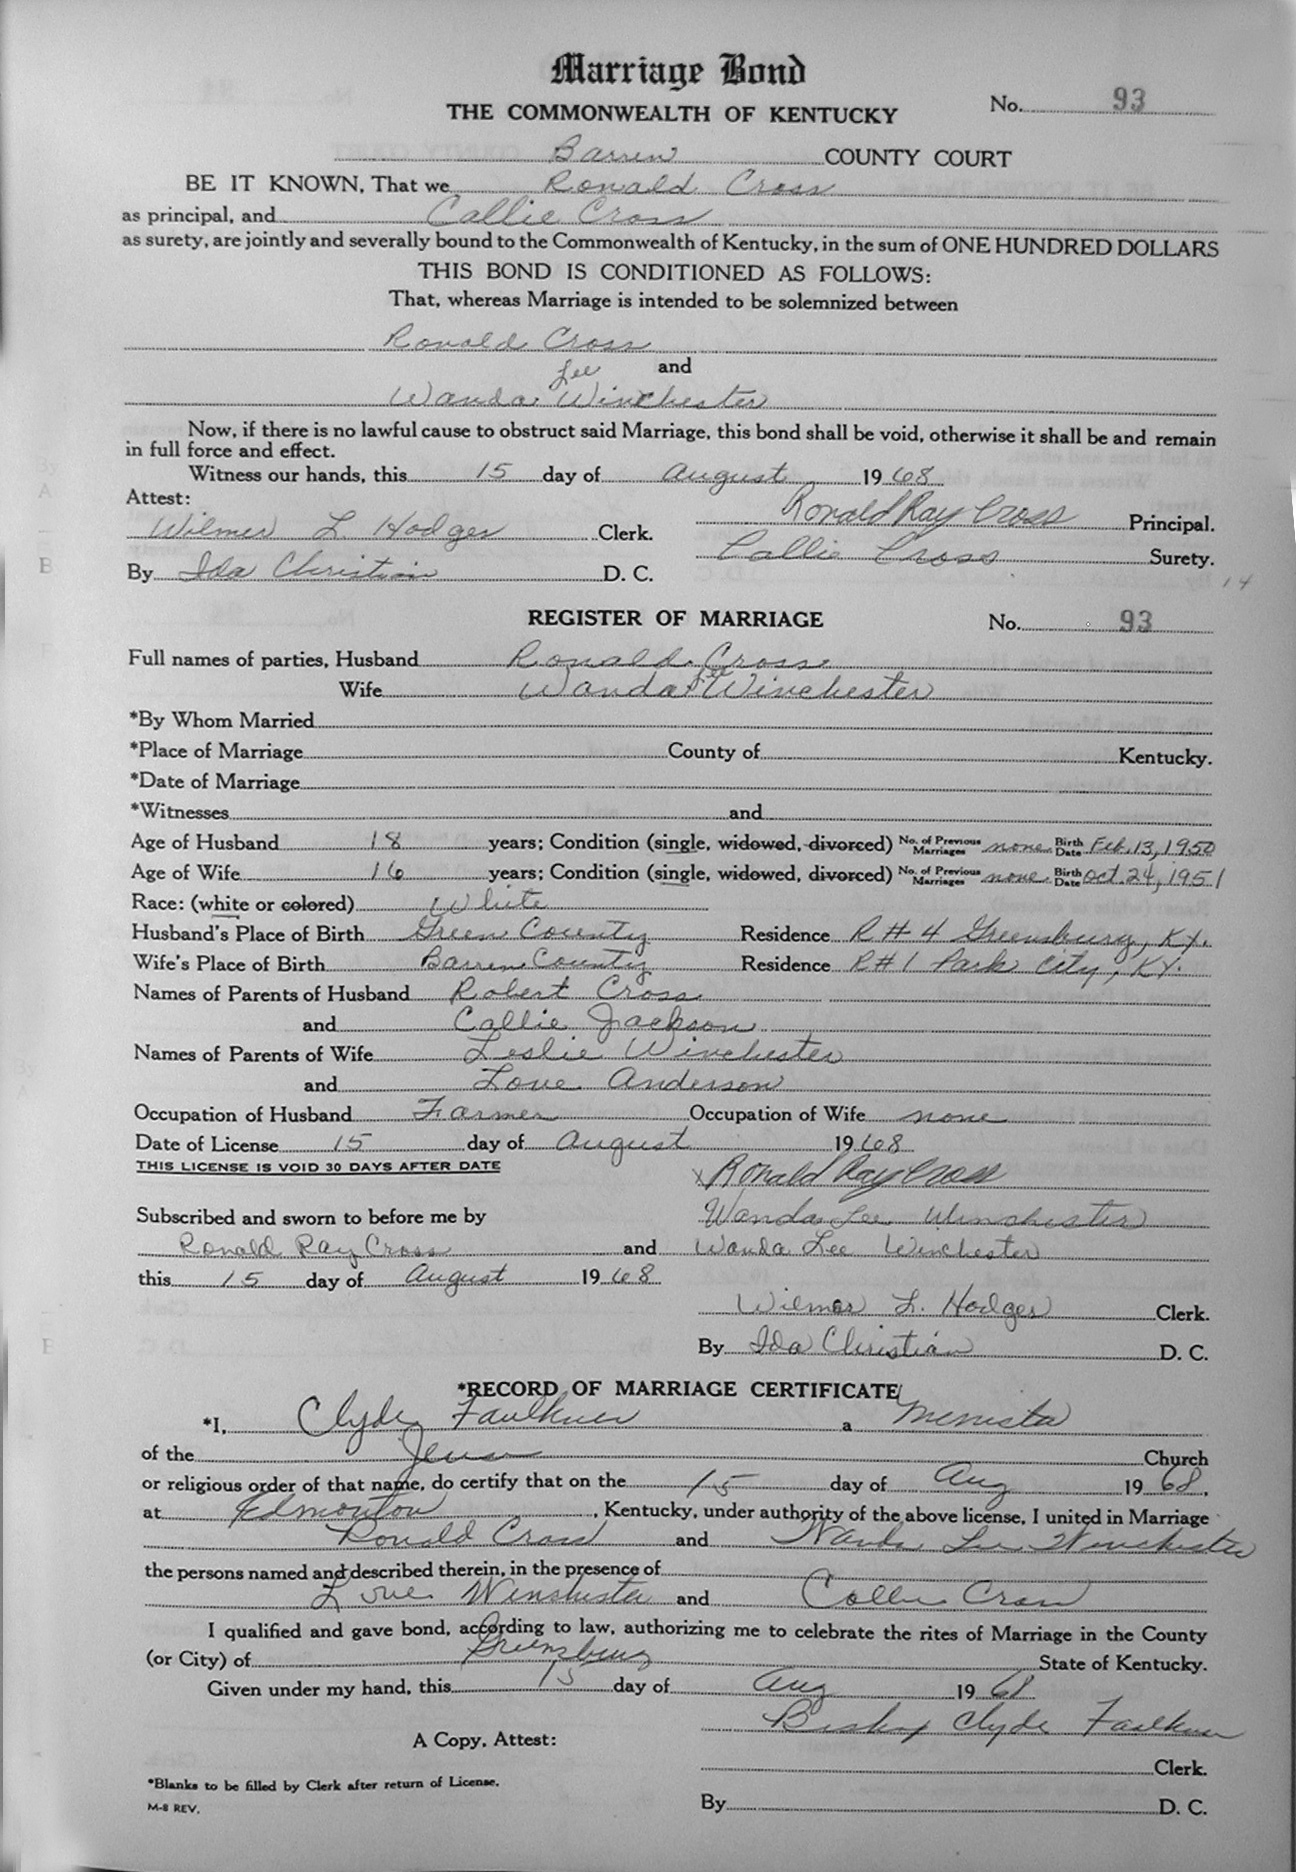 Marriage Bond
No. 93
THE COMMONWEALTH OF KENTUCKY
Barren COUNTY COURT
BE IT KNOWN, That we Ronald Cross
as principal, and Callie Cross
as surety, are jointly and severally bound to the Commonwealth of Kentucky, in the sum of ONE HUNDRED DOLLARS
THIS BOND IS CONDITIONED AS FOLLOWS:
That, whereas Marriage is intended to be solemnized between
Ronald Cross
and
Wanda Lee Winchester
Now, if there is no lawful cause to obstruct said Marriage, this bond shall be void, otherwise it shall be and remain
in full force and effect.
Witness our hands, this 15 day of August 1968
Attest:
Ronald Ray Cross Principal.
Wilmer L. Hodges Clerk.
Callie Cross Surety.
By Ida Christian D. C.
14
REGISTER OF MARRIAGE No. 93
Full names of parties, Husband Ronald Cross
Wife Wanda Lee Winchester
*By Whom Married
*Place of Marriage County of Kentucky.
*Date of Marriage
*Witnesses and
Age of Husband 18 years; Condition (single, widowed, divorced) No. of Previous Marriages none Birth Date Feb. 13, 1950
Age of Wife 16 years; Condition (single, widowed, divorced) No. of Previous Marriages none Birth Date Oct. 24, 1951
Race: (white or colored) White
Husband's Place of Birth Green County Residence R#4 Greensburg, Ky.
Wife's Place of Birth Barren County Residence R#1 Park City, Ky.
Names of Parents of Husband Robert Cross
and Callie Jackson
Names of Parents of Wife Leslie Winchester
and Love Anderson
Occupation of Husband Farmer Occupation of Wife none
Date of License 15 day of August 1968
THIS LICENSE IS VOID 30 DAYS AFTER DATE
X Ronald Ray Cross
Subscribed and sworn to before me by Wanda Lee Winchester
Ronald Ray Cross and Wanda Lee Winchester
this 15 day of August 1968
Wilmer L. Hodges Clerk.
By Ida Christian D. C.
*RECORD OF MARRIAGE CERTIFICATE
*I, Clyde Faulkner a Menista
of the Jesus Church
or religious order of that name, do certify that on the 15 day of Aug 1968,
at Edmonton, Kentucky, under authority of the above license, I united in Marriage
Ronald Cross and Wanda Lee Winchester
the persons named and described therein, in the presence of
Love Winchester and Callie Cross
I qualified and gave bond, according to law, authorizing me to celebrate the rites of Marriage in the County
(or City) of Greensburg State of Kentucky.
Given under my hand, this 15 day of Aug 1968
Bishop Clyde Faulkner
A Copy, Attest:
Clerk.
*Blanks to be filled by Clerk after return of License.
M-8 REV.
By D. C.